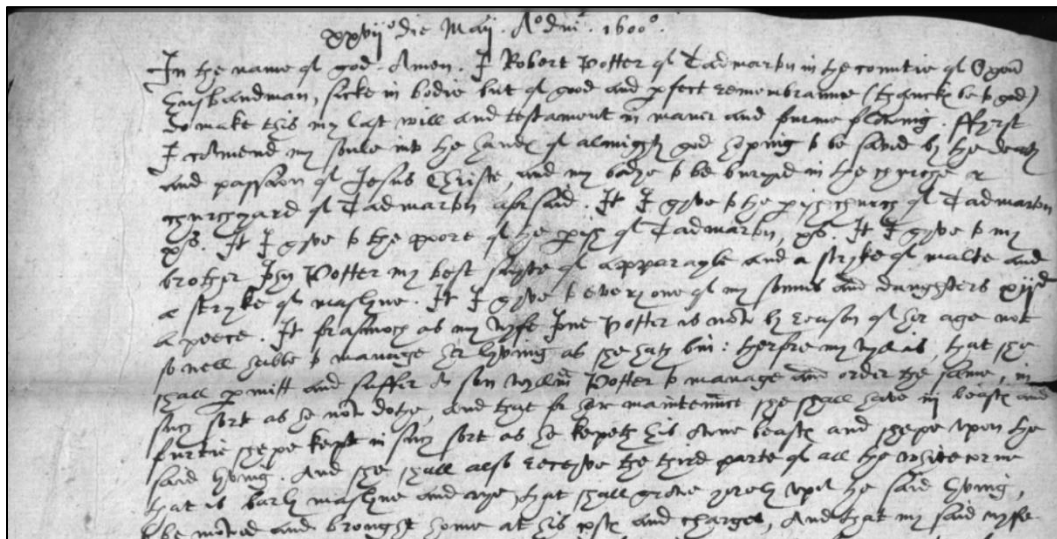 xxvijo die Maij. Ao dni. 1600o.
In the name of god Amen. I Robert Potter of Tadmarton in the countie of Oxon
husbandman, sicke in bodie but of good and pfect remembraunce (thanckes be to god)
do make this my last will and testament in maner and forme folowing. ffyrst
I comend my soule into the handes of almightie god hoping to be saved by the death
and passion of Jesus Christe, and my bodye to be buryed in the churche or
churchyard of Tadmarton aforsaid. It I gyve to the parish church of Tadmarton
It I gyve to the poore of the parish of Tadmarton, It I gyve to my
brother Potter my best of apparayle and a stryke of malte and
a stryke of maslyne. It I gyve to every one of my sonnes and daughters xijd
a peece. It forasmuch as my wyfe Jone Potter is not by reason of her age not
so well hable to manage her lyving as she hath bin: therfore my wyll is, that she
shall pmitt and suffer son Wyllm Potter to manage and order the same, in
such sort as he now dothe, and that for her maintenance she shall have iij beastes and
fortie shepe kept in such sort as he kepeth his owne beastes and shepe upon the
said lyving. And she shall also receyve the third parte of all the white corne
that is barly maslyne and rye that shall growe yerely upon the said lyving,
to be mowed and brought home at his costes and charges, And that my said wyfe